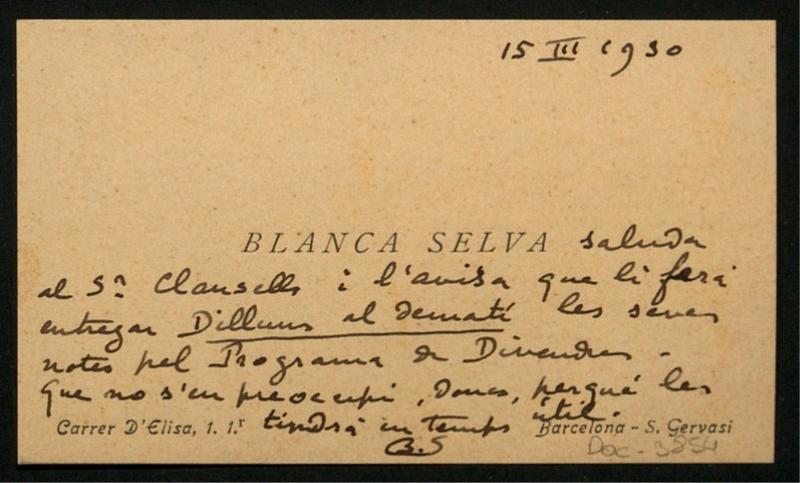 15 III 1930
BLANCA SELVA saluda
al Sr. Clausells i l'avisa que li farà
entregar Dilluns al dematí les seves
notes pel Programa de Divendres.
que no s'en preocupi, doncs, perquè les
tindrà en temps útil.
Carrer D'Elisa, 1. 1.r
Barcelona - S. Gervasi
B.S
Doc. 3854